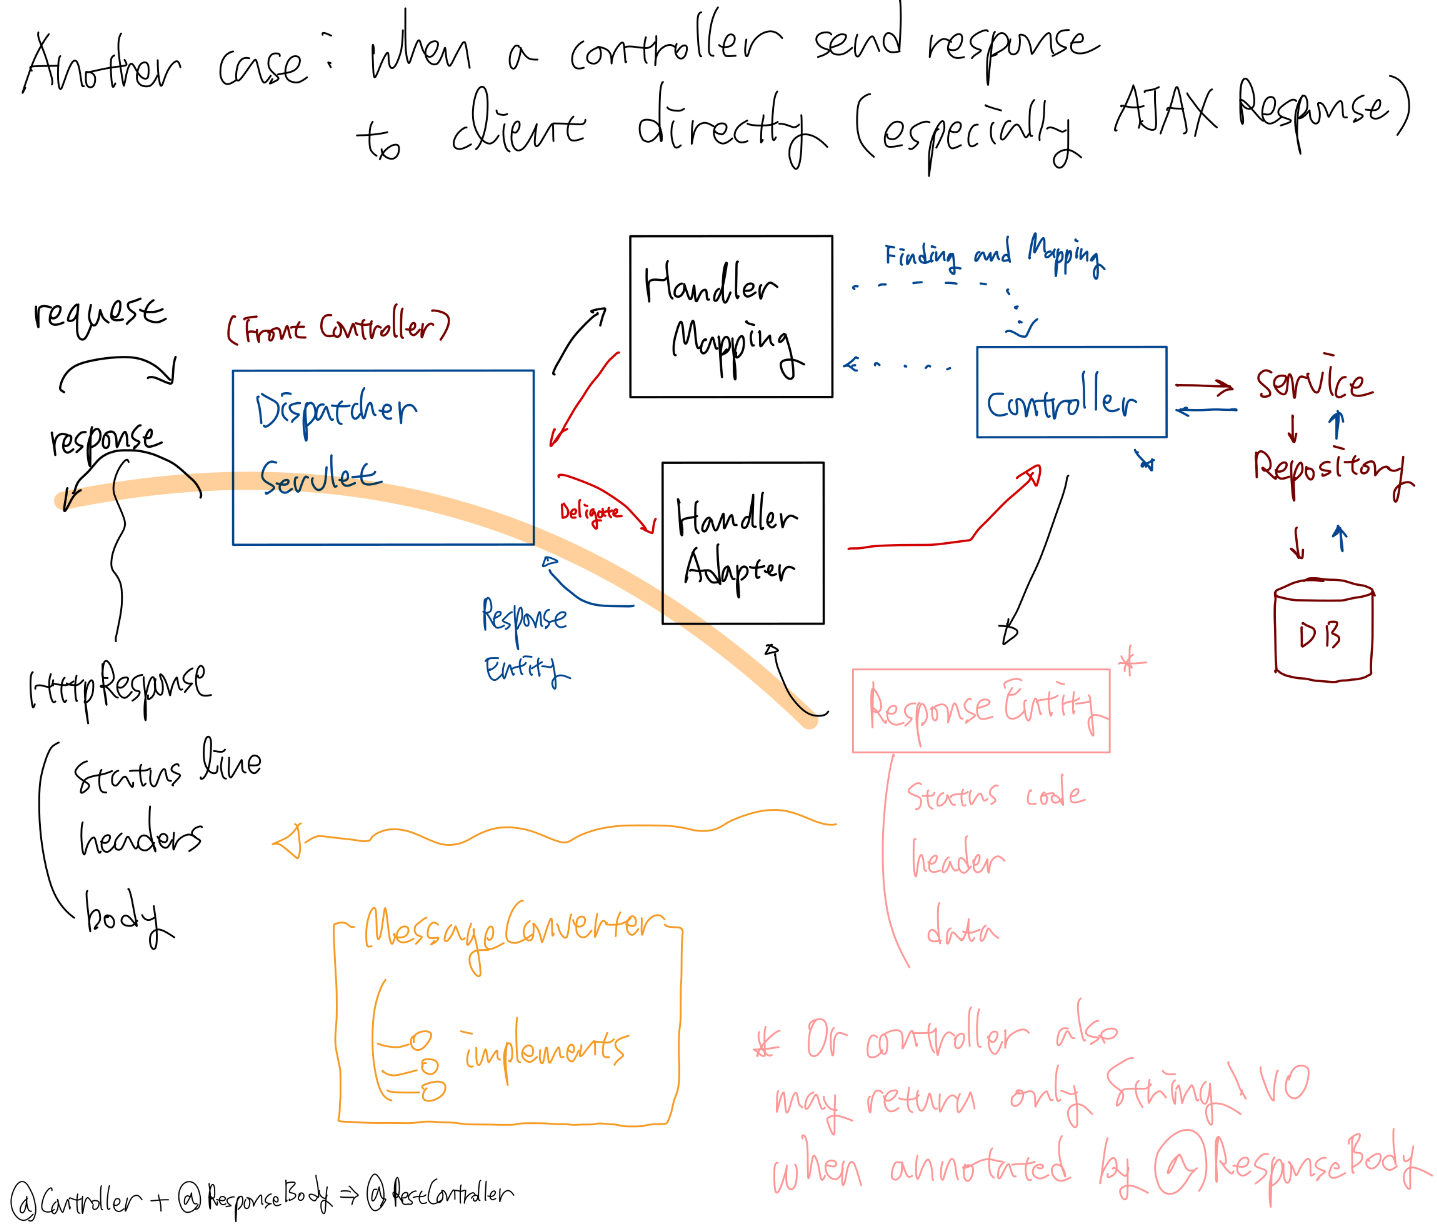 Another case: when a controller send response
to client directly (especially AJAX Response)
request
response
(Front Controller)
Dispatcher
Servlet
Handler
Mapping
Finding and Mapping
Controller
Service
Repository
DB
Deligate
Handler
Adapter
Response
Entity
HttpResponse
Status line
headers
body
Response Entity *
Status code
header
data
MessageConverter
implements
* Or controller also
may return only String \ VO
when annotated by @ResponseBody
@Controller + @ResponseBody ⇒ @RestController